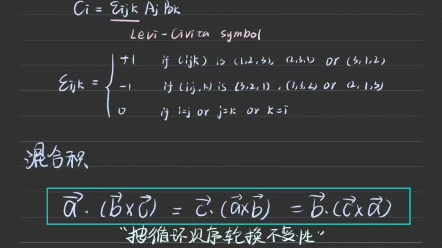 Ci = εijk Aj Bk
Levi-Civita symbol
+1 if (ijk) is (1,2,3), (2,3,1) or (3,1,2)
εijk = { -1 if (ijk) is (3,2,1), (1,3,2) or (2,1,3)
0 if i=j or j=k or k=i
混合积
a⃗·(b⃗×c⃗) = c⃗·(a⃗×b⃗) = b⃗·(c⃗×a⃗)
"按循环次序轮换不变性"